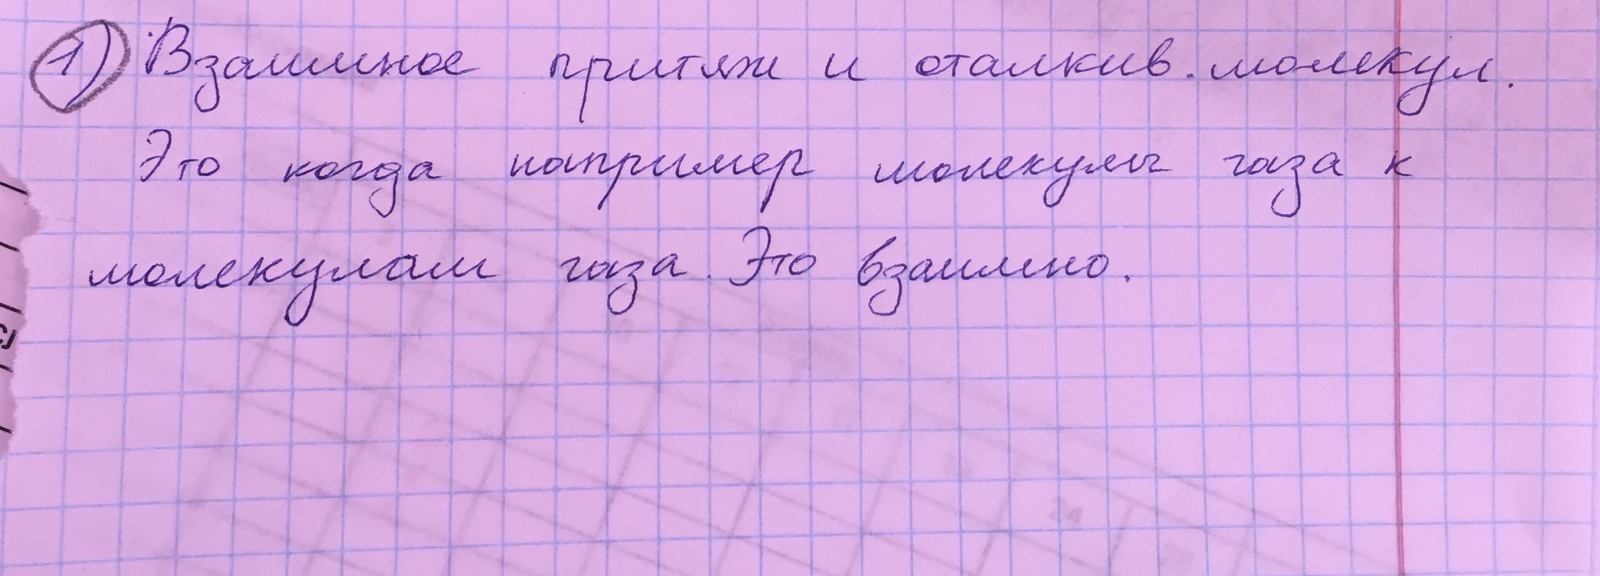 1) Взаимное притяж и оталкив. молекул.
Это когда например молекулы газа к
молекулам газа. Это взаимно.